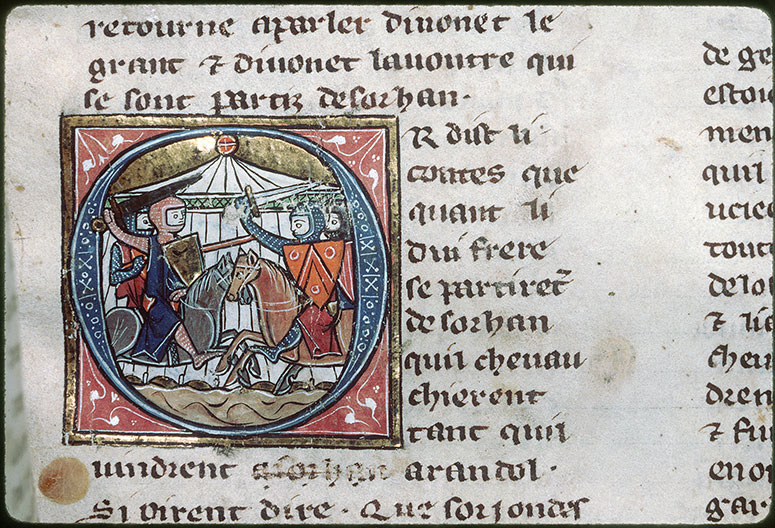 retourne a parler diuonet le
grant ⁊ diuonet lauoutre qui
se sont partiz de sorhan.
R dist li
contes que
quant li
dui frere
se partirēt
de sorhan
quil cheuau
chierent
tant quil
uindrent a sorhan arandol.
Si virent dire. Que sorjondes
de ge
estoie
men
quil
ucie
tout
delo
⁊ lie
cheu
dren
⁊ fu
en o
gar